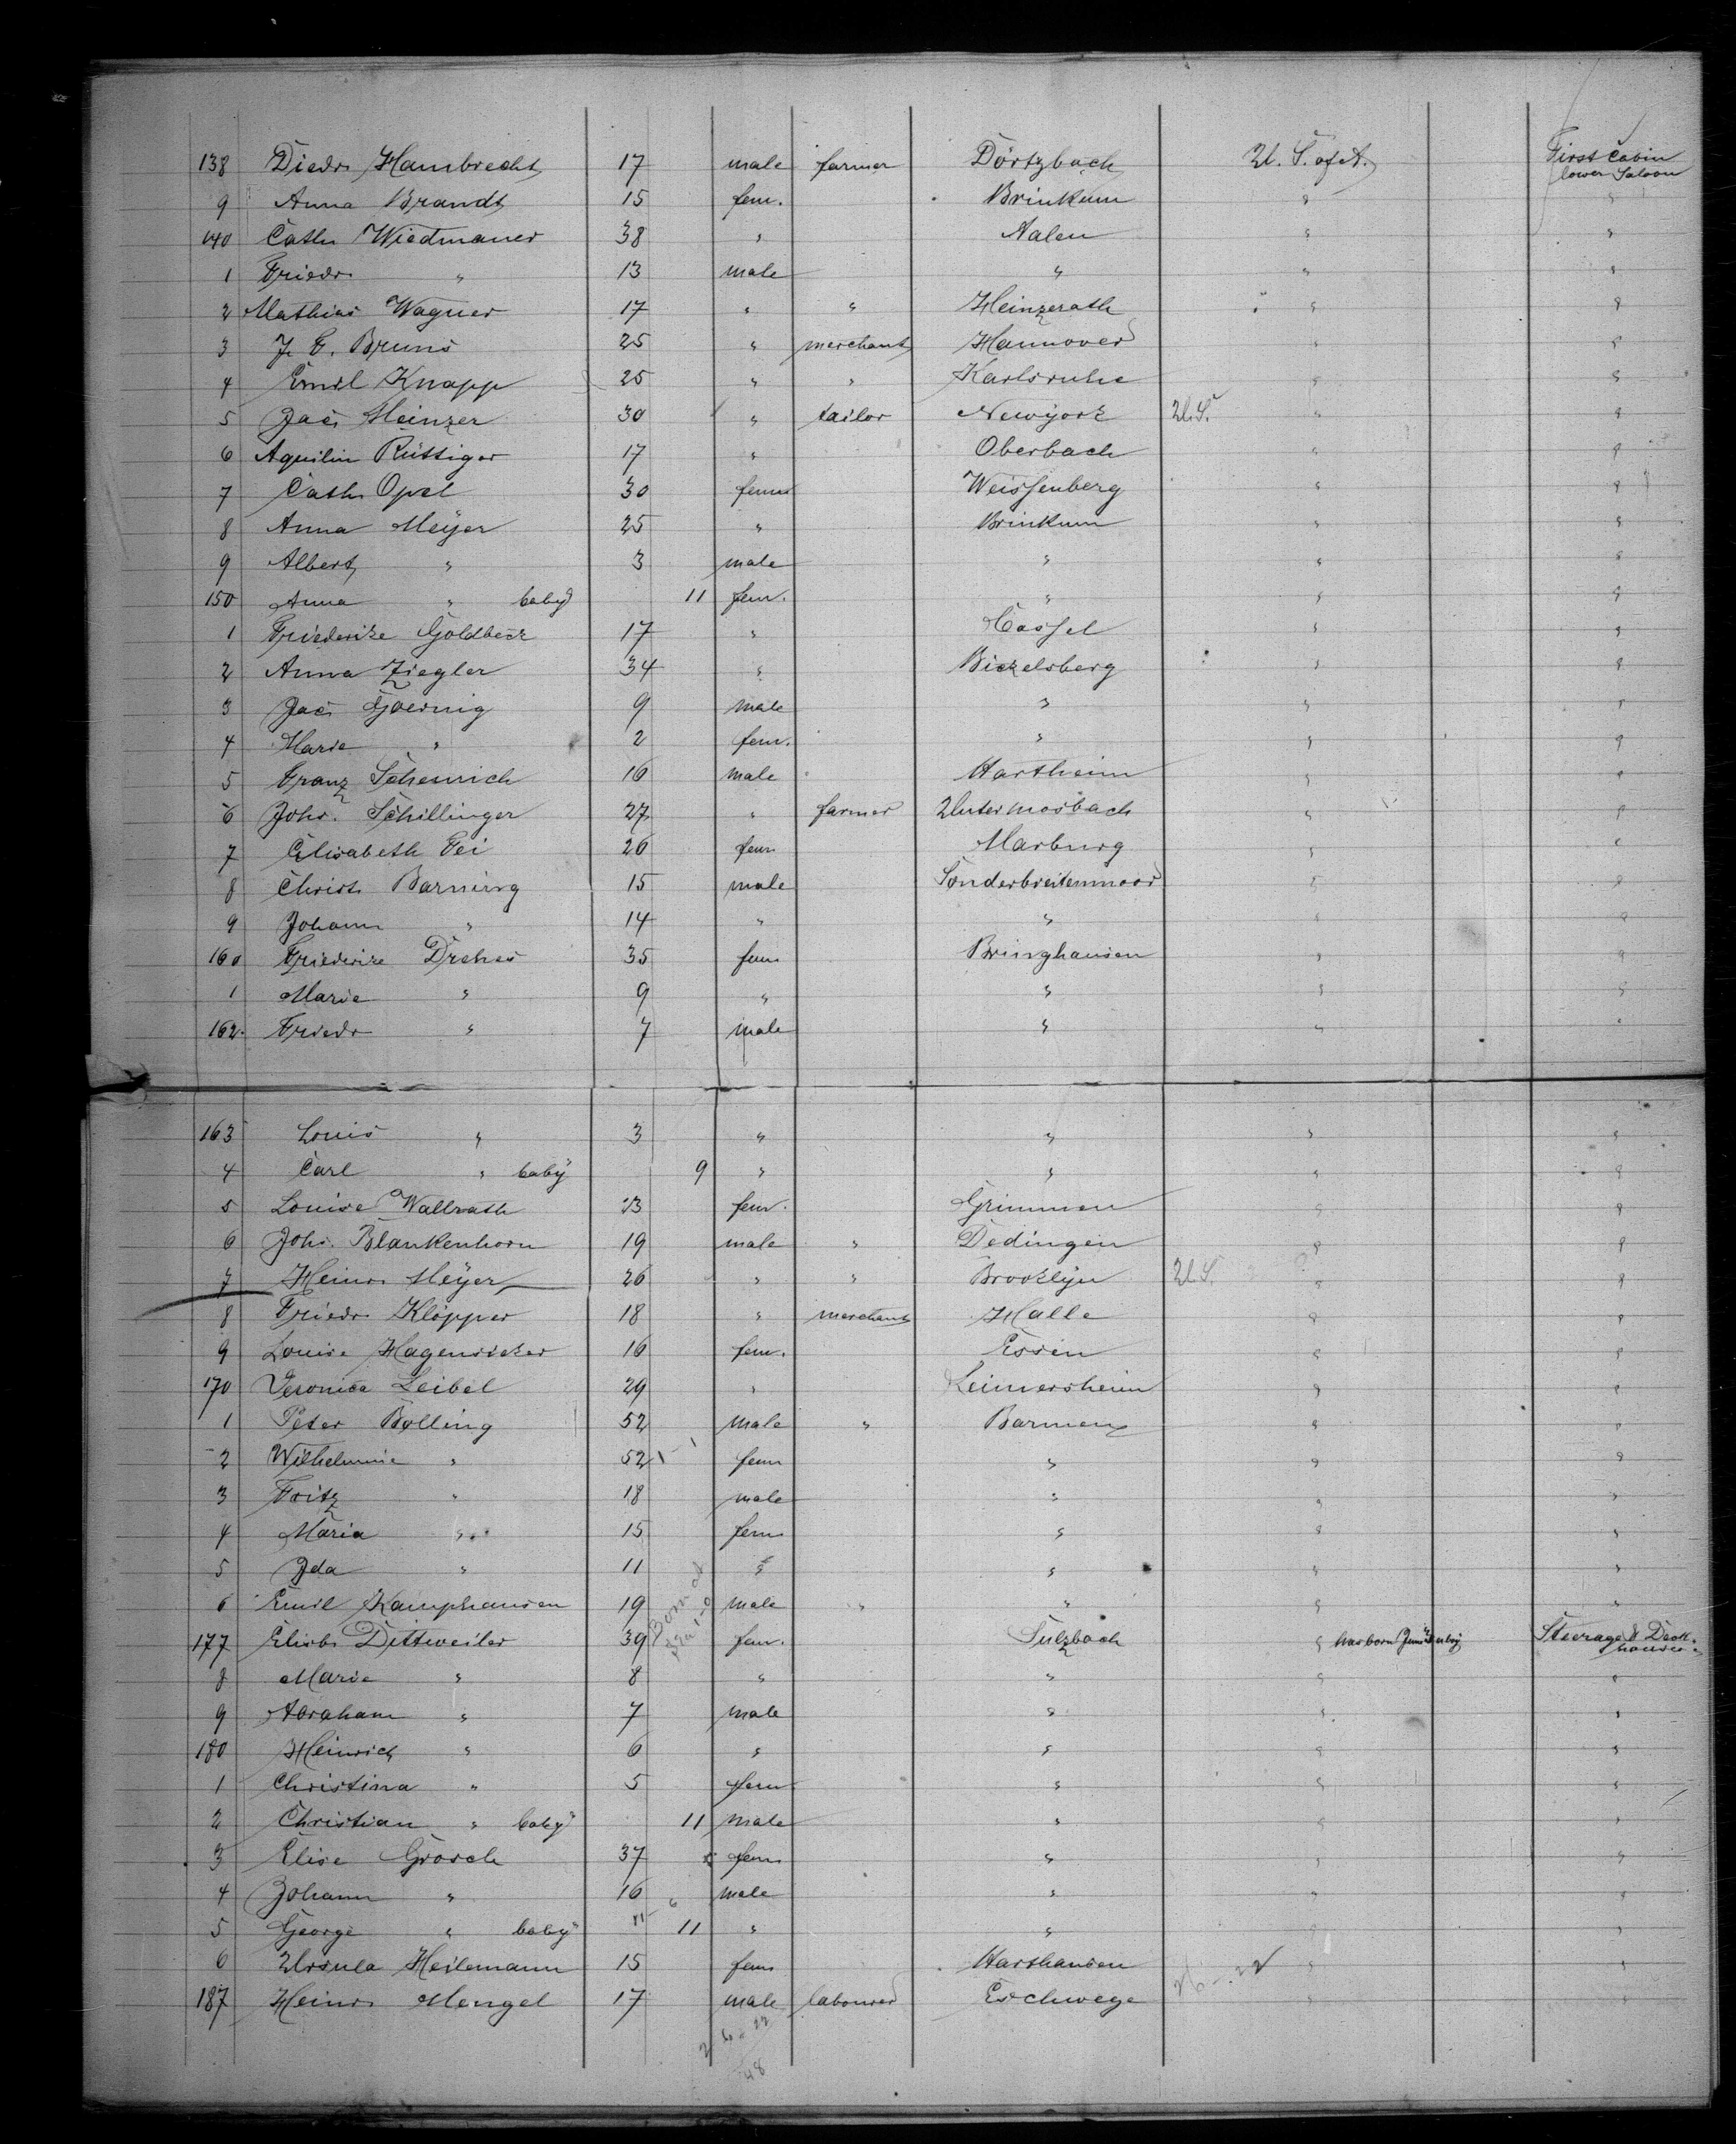 138 Diedr. Hambrecht 17 male farmer Dörtzbach U. S. of A. First Cabin lower Saloon
9 Anna Brandt 15 fem. Brinkum " "
140 Cath. Wiedmaner 38 " Aalen " "
1 Friedr. " 13 male " " "
2 Mathias Wagner 17 " " Heinzerath " "
3 J. F. Bruns 25 " merchant Hannover " "
4 Emil Knapp 25 " " Karlsruhe " "
5 Jac. Heinzer 30 " tailor Newyork U.S. " "
6 Aquilin Rüttiger 17 " Oberbach " "
7 Cath. Opel 30 fem. Weissenberg " "
8 Anna Meÿer 25 " Brinkum " "
9 Albert " 3 male " " "
150 Anna " baby 11 fem. " " "
1 Friederike Goldbeck 17 " Cassel " "
2 Anna Ziegler 34 " Bickelsberg " "
3 Jac. Goernig 9 male " " "
4 Marie " 2 fem. " " "
5 Franz Schenrich 16 male Hartheim " "
6 Johs. Schillinger 27 " farmer Untermosbach " "
7 Elisabeth Fei 26 fem. Marburg " "
8 Christ. Barning 15 male Sonderbreitenmoor " "
9 Johann " 14 " " " "
160 Friederike Drehes 35 fem. Bringhausen " "
1 Marie " 9 " " " "
162. Friedr. " 7 male " " "
163 Louis " 3 " " " "
4 Carl " baby 9 " " " "
5 Louise Wallrath 23 fem. Grimmen " "
6 Johs. Blankenhorn 19 male " Dedingen " "
7 Heinr. Meÿer 26 " " Brooklyn U.S. " "
8 Friedr. Klöpper 18 " merchant Halle " "
9 Louise Hagensieker 16 fem. Essen " "
170 Veronica Leibel 29 " Leimersheim " "
1 Peter Bolling 52 male " Barmen " "
2 Wilhelmine " 52 fem. " " "
3 Fritz " 18 male " " "
4 Maria " 15 fem. " " "
5 Ida " 11 " " " "
6 Emil Kamphausen 19 male " " " "
Born at Sea
177 Elisb. Dittweiler 39 fem. Sulzbach " was born Steerage & Deckhouse
8 Marie " 8 " " " "
9 Abraham " 7 male " " "
180 Heinrich " 6 " " " "
1 Christina " 5 fem. " " "
2 Christian " baby 11 male " " "
3 Elise Grosch 37 fem. " " "
4 Johann " 16 male " " "
5 George " baby 11 " " " "
6 Ursula Heilemann 15 fem. Harthausen " "
187 Heinr. Mengel 17 male labourer Eschwege " "
48